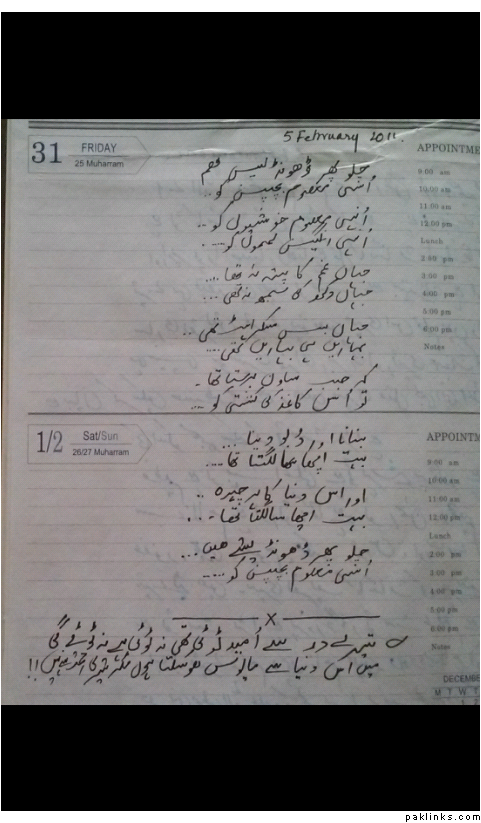 5 February 2011.
31
FRIDAY
25 Muharram
APPOINTME
9:00 am
10:00 am
11:00 am
12:00 pm
Lunch
2:00 pm
3:00 pm
4:00 pm
5:00 pm
6:00 pm
Notes
چلو پھر ڈھونڈ لیں ہم
اُسی معصوم بچپن کو..
اُنہی معصوم خوشیوں کو..
اُنہی رنگیں لمحوں کو....
جہاں غم کا پتہ نہ تھا...
جہاں دکھ کی سمجھ نہ تھی...
جہاں بس مسکراہٹ تھی...
بہاریں ہی بہاریں تھی....
کہ جب ساون برستا تھا۔
تو اُس کاغذ کی کشتی کو...
1/2
Sat/Sun
26/27 Muharram
APPOINTM
9:00 am
10:00 am
11:00 am
12:00 pm
Lunch
2:00 pm
3:00 pm
4:00 pm
5:00 pm
6:00 pm
Notes
بنانا اور ڈبو دینا....
بہت اچھا سا لگتا تھا....
اور اس دنیا کا ہر چہرہ..
بہت اچھا سا لگتا تھا...
چلو پھر ڈھونڈ لیتے ہیں...
اُسی معصوم بچپن کو....
x
تیرے در سے اُمید ٹوٹی تھی نہ ٹوٹی ہے نہ ٹوٹے گی
میں اس دنیا سے مایوس ہو سکتا ہوں مگر تیری !!
DECEMBE
M T W T
paklinks.com